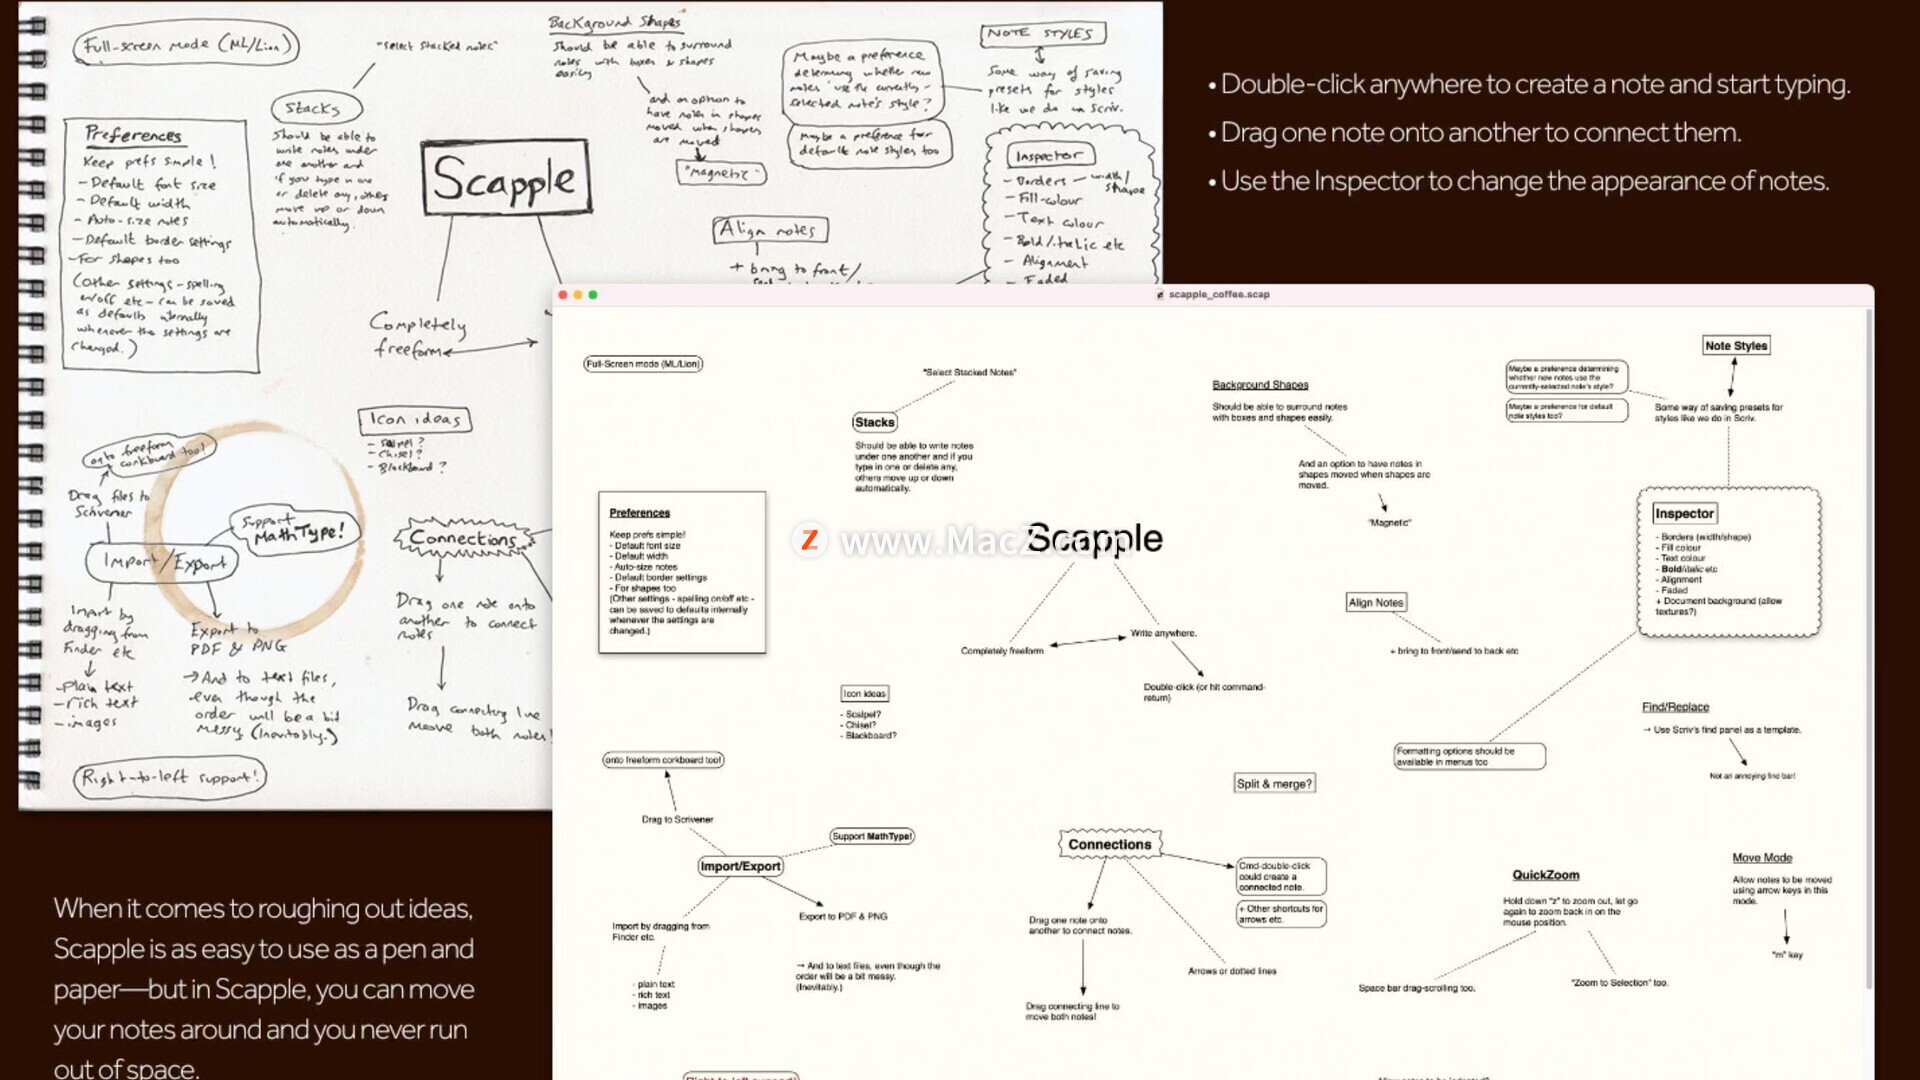 Full-screen mode (ML/Lion)
"select stacked notes"
Stacks
Should be able to
write notes under
one another and
if you type in one
or delete any, others
move up or down
automatically.
Background Shapes
Should be able to surround
notes with boxes & shapes
easily
and an option to
have notes in shapes
moved when shapes
are moved
"magnetic"
Maybe a preference
determining whether new
notes use the currently-
selected note's style?
Maybe a preference for
default note styles too
NOTE STYLES
Some way of saving
presets for styles
like we do in Scriv.
Inspector
- Borders - width/
shape
- Fill-colour
- Text colour
- Bold/italic etc
- Alignment
- Faded
Preferences
Keep prefs simple!
- Default font size
- Default width
- Auto-size notes
- Default border settings
- For shapes too
(Other settings - spelling
on/off etc - can be saved
as defaults internally
whenever the settings are
changed.)
Scapple
Align notes
+ bring to front/
Completely
freeform
Icon ideas
- Scalpel?
- Chisel?
- Blackboard?
onto freeform
corkboard too!
Drag files to
Scrivener
Support
MathType!
Import/Export
Connections
Import by
dragging from
Finder etc
- plain text
- rich text
- images
Export to
PDF & PNG
→ And to text files,
even though the
order will be a bit
messy (inevitably.)
Drag one note onto
another to connect
notes
Drag connecting line
move both notes!
Right-to-left support!
• Double-click anywhere to create a note and start typing.
• Drag one note onto another to connect them.
• Use the Inspector to change the appearance of notes.
scapple_coffee.scap
Full-Screen mode (ML/Lion)
"Select Stacked Notes"
Stacks
Should be able to write notes
under one another and if you
type in one or delete any,
others move up or down
automatically.
Background Shapes
Should be able to surround notes
with boxes and shapes easily.
And an option to have notes in
shapes moved when shapes are
moved.
"Magnetic"
Maybe a preference determining
whether new notes use the
currently-selected note's style?
Maybe a preference for default
note styles too?
Note Styles
Some way of saving presets for
styles like we do in Scriv.
Inspector
- Borders (width/shape)
- Fill colour
- Text colour
- Bold/italic etc
- Alignment
- Faded
+ Document background (allow
textures?)
Preferences
Keep prefs simple!
- Default font size
- Default width
- Auto-size notes
- Default border settings
- For shapes too
(Other settings - spelling on/off etc -
can be saved to defaults internally
whenever the settings are
changed.)
Z www.MacZ.com
Scapple
Completely freeform
Write anywhere.
Double-click (or hit command-
return)
Align Notes
+ bring to front/send to back etc
Icon ideas
- Scalpel?
- Chisel?
- Blackboard?
Find/Replace
→ Use Scriv's find panel as a template.
Not an annoying find bar!
Formatting options should be
available in menus too
Split & merge?
onto freeform corkboard too!
Drag to Scrivener
Support MathType!
Import/Export
Import by dragging from
Finder etc.
- plain text
- rich text
- images
Export to PDF & PNG
→ And to text files, even though the
order will be a bit messy.
(Inevitably.)
Connections
Cmd-double-click
could create a
connected note.
+ Other shortcuts for
arrows etc.
Drag one note onto
another to connect notes.
Arrows or dotted lines
Drag connecting line to
move both notes!
QuickZoom
Hold down "z" to zoom out, let go
again to zoom back in on the
mouse position.
Space bar drag-scrolling too.
"Zoom to Selection" too.
Move Mode
Allow notes to be moved
using arrow keys in this
mode.
"m" key
When it comes to roughing out ideas,
Scapple is as easy to use as a pen and
paper—but in Scapple, you can move
your notes around and you never run
out of space.